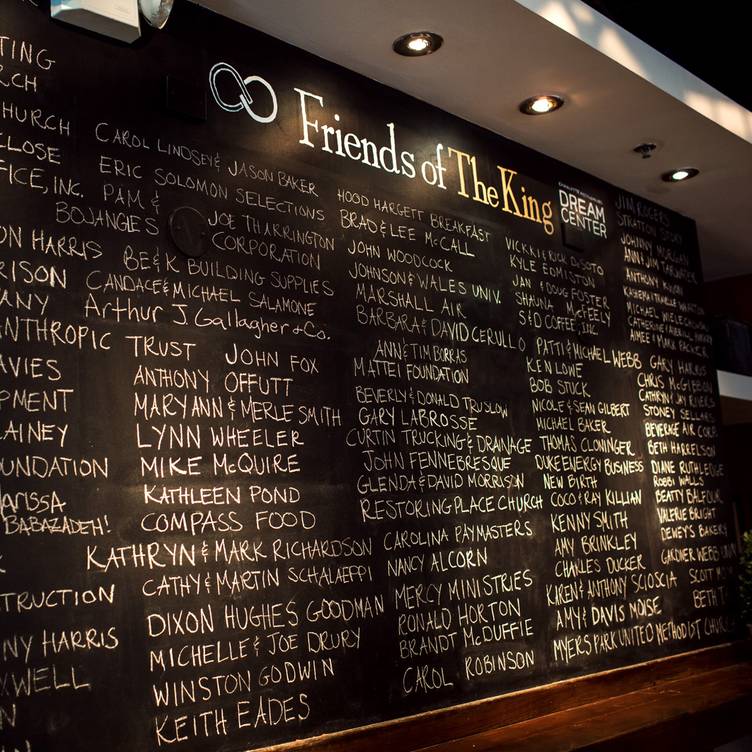 Friends of The King
DREAM
CENTER
TING
RCH
HURCH
CLOSE
FICE, INC.
ON HARRIS
RISON
ANY
NTHROPIC TRUST
AVIES
PMENT
LAINEY
UNDATION
MARISSA
BABAZADEH!
TRUCTION
NY HARRIS
WELL
N
CAROL LINDSEY & JASON BAKER
ERIC SOLOMON SELECTIONS
PAM &
BOJANGLES
JOE THARRINGTON
CORPORATION
BE&K BUILDING SUPPLIES
CANDACE & MICHAEL SALAMONE
Arthur J. Gallagher & Co.
JOHN FOX
ANTHONY OFFUTT
MARY ANN & MERLE SMITH
LYNN WHEELER
MIKE McQUIRE
KATHLEEN POND
COMPASS FOOD
KATHRYN & MARK RICHARDSON
CATHY & MARTIN SCHALAEPPI
DIXON HUGHES GOODMAN
MICHELLE & JOE DRURY
WINSTON GODWIN
KEITH EADES
HOOD HARGETT BREAKFAST
BRAD & LEE McCALL
JOHN WOODCOCK
JOHNSON & WALES UNIV.
MARSHALL AIR
BARBARA & DAVID CERULLO
ANN & TIM BORRAS
MATTEI FOUNDATION
BEVERLY & DONALD TRUSLOW
GARY LABROSSE
CURTIN TRUCKING & DRAINAGE
JOHN FENNEBRESQUE
GLENDA & DAVID MORRISON
RESTORING PLACE CHURCH
CAROLINA PAYMASTERS
NANCY ALCORN
MERCY MINISTRIES
RONALD HORTON
BRANDT McDUFFIE
CAROL ROBINSON
VICKI & RICK
KYLE EDMISTON
JAN & DOUG FOSTER
SHAUNA McFEELY
S&D COFFEE, INC
PATTI & MICHAEL WEBB
KEN LOWE
BOB STUCK
NICOLE & SEAN GILBERT
MICHAEL BAKER
THOMAS CLONINGER
DUKE ENERGY BUSINESS
NEW BIRTH
COCO & RAY KILLIAN
KENNY SMITH
AMY BRINKLEY
CHARLES DUCKER
KIREN & ANTHONY SCIOSCIA
AMY & DAVIS NOISE
MYERS PARK UNITED METHODIST CHURCH
JIM ROGERS
STRATTON
JOHNNY
ANN & JIM
ANTHONY
MICHAEL
CATHERINE
AIMEE & MARK
GARY HARRIS
CHRIS McGIBBON
CATHRYN & JAY RIVERS
STONEY SELLARS
BEVERAGE AIR CORP
BETH HARRELSON
DIANE RUTHLEDGE
ROBBI WALLS
BEATTY BALFOUR
VALERIE BRIGHT
DEWEY'S BAKERY
GARDNER WEBB
SCOTT
BETH